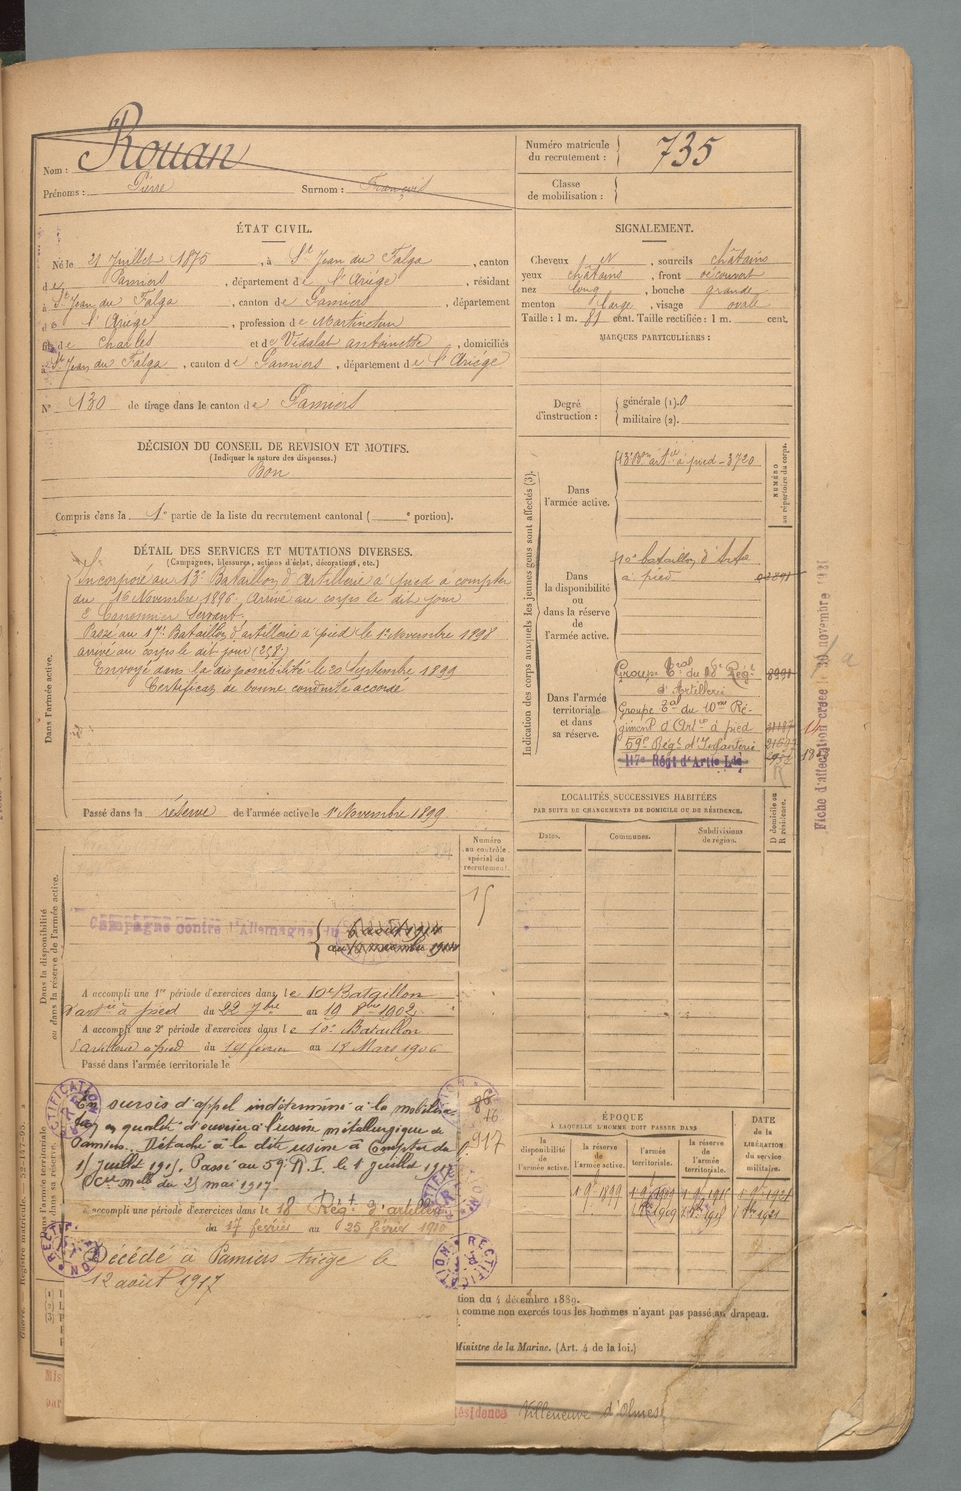 Nom : Rouan
Prénoms : Pierre Surnom : François
Numéro matricule du recrutement : 735
Classe de mobilisation :
ÉTAT CIVIL.
Né le 21 Juillet 1875, à St Jean du Falga, canton
de Pamiers, département de l'Ariège, résidant
à St Jean du Falga, canton de Pamiers, département
de l'Ariège, profession de Martineteur
fils de Charles et de Vidalat antoinette, domiciliés
à St Jean du Falga, canton de Pamiers, département de l'Ariège
N° 130 de tirage dans le canton de Pamiers
SIGNALEMENT.
Cheveux N, sourcils châtains
yeux châtains, front découvert
nez long, bouche grande
menton large, visage ovale
Taille : 1 m. 81 cent. Taille rectifiée : 1 m. cent.
MARQUES PARTICULIÈRES :
Degré d'instruction : générale (1). 0
militaire (2).
DÉCISION DU CONSEIL DE REVISION ET MOTIFS.
(Indiquer la nature des dispenses.)
Bon
Compris dans la 1e partie de la liste du recrutement cantonal ( e portion).
DÉTAIL DES SERVICES ET MUTATIONS DIVERSES.
(Campagnes, blessures, actions d'éclat, décorations, etc.)
Dans l'armée active.
Incorporé au 13e Bataillon d'Artillerie à pied à compter
du 16 Novembre 1896. Arrivé au corps le dit jour
2e Canonnier Servant.
Passé au 17e Bataillon d'artillerie à pied le 1er Novembre 1898
arrivé au corps le dit jour
Envoyé dans la disponibilité le 20 Septembre 1899
Certificat de bonne conduite accordé
Passé dans la réserve de l'armée active le 1er Novembre 1899
Indication des corps auxquels les jeunes gens sont affectés (3).
NUMÉRO au répertoire du corps.
Dans l'armée active.
13e Bon artie à pied - 3720
Dans la disponibilité ou dans la réserve de l'armée active.
10e bataillon d'Artie
à pied
Dans l'armée territoriale et dans sa réserve.
Groupe Tal du 18e Régt
d'Artillerie
Groupe Tal du 10me Ré-
giment d'Artie à pied
59e Régt d'Infanterie
117e Régt d'Artie Lde
Fiche d'affectation créée le novembre
LOCALITÉS SUCCESSIVES HABITÉES
PAR SUITE DE CHANGEMENTS DE DOMICILE OU DE RÉSIDENCE.
Dates.
Communes.
Subdivisions de région.
D domicile ou R résidence.
Numéro au contrôle spécial du recrutement.
15
Dans la disponibilité ou dans la réserve de l'armée active.
Campagne contre l'Allemagne du
A accompli une 1re période d'exercices dans le 10e Bataillon
d'artie à pied du 22 7bre au 19 8bre 1902
A accompli une 2e période d'exercices dans le 10e Bataillon
d'artillerie à pied du 19 février au 18 Mars 1906
Passé dans l'armée territoriale le
En sursis d'appel indéterminé à la mobilisa-
tion en qualité d'ouvrier à l'usine métallurgique de
Pamiers. Détaché à la dite usine à compter du
15 juillet 1915. Passé au 59e R. I. le 1 juillet 1917
Cire Melle du 25 mai 1917
A accompli une période d'exercices dans le 18 Régt d'artillerie
du 17 février au 25 février 1910
Décédé à Pamiers Ariège le
12 août 1917
RECTIFICATION
ÉPOQUE
À LAQUELLE L'HOMME DOIT PASSER DANS
la disponibilité de l'armée active.
la réserve de l'armée active.
l'armée territoriale.
la réserve de l'armée territoriale.
DATE de la LIBÉRATION du service militaire.
tion du 4 décembre 1889.
comme non exercés tous les hommes n'ayant pas passé au drapeau.
Ministre de la Marine. (Art. 4 de la loi.)
Résidence Villeneuve d'Olmes